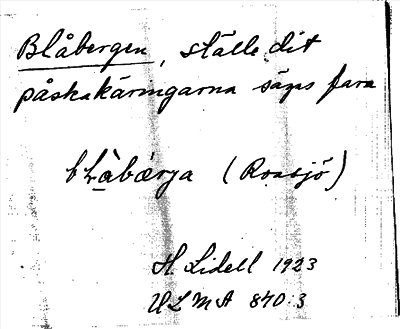 Blåbergen, ställe dit
påskakäringarna säges fara
bLàbærga (Roasjö)
H. Lidell 1923
ULMA 840:3